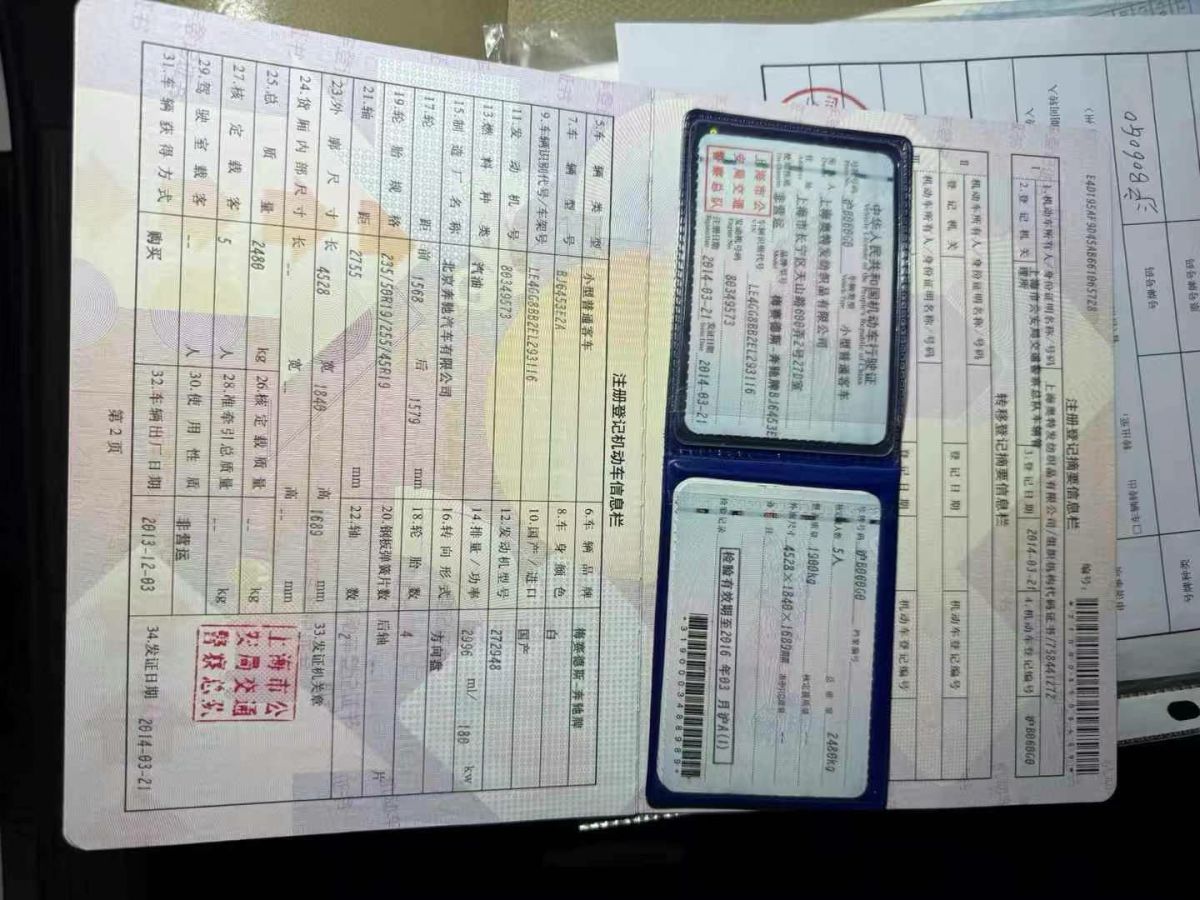 注册登记摘要信息栏
编号:
1.机动车所有人/身份证明名称/号码 上海奥特发纺织品有限公司/组织机构代码证书/738441272
2.登记机关 上海市公安局交通警察总队车辆管理所 3.登记日期 2014-03-21 4.机动车登记编号 沪B000G0
转移登记摘要信息栏
机动车所有人/身份证明名称/号码
登记机关 登记日期 机动车登记编号
机动车所有人/身份证明名称/号码
登记日期 机动车登记编号
中华人民共和国机动车行驶证
Vehicle License of the People's Republic of China
号牌号码 沪B000G0 车辆类型 小型普通客车
所有人 上海奥特发纺织品有限公司
住址 上海市长宁区天山路600弄2号27D室
使用性质 非营运 品牌型号 梅赛德斯-奔驰牌BJ6453E
上海市公安局交通警察总队
车辆识别代号 LE4GG8BB2EL293116
发动机号码 80349573
注册日期 2014-03-21 发证日期 2014-03-21
号牌号码 沪B000G0 档案编号
核定人数 5人 总质量 2480kg
整备质量 1900kg 核定载质量 --
外廓尺寸 4528×1840×1689mm 准牵引总质量 --
备注
检验记录 检验有效期至2016年03月沪A(1)
*3190003488989*
注册登记机动车信息栏
5.车辆类型 小型普通客车 6.车辆品牌 梅赛德斯-奔驰牌
7.车辆型号 BJ6453E2A 8.车身颜色 白
9.车辆识别代号/车架号 LE4GG8BB2EL293116 10.国产/进口 国产
11.发动机号 80349573 12.发动机型号 272948
13.燃料种类 汽油 14.排量/功率 2996 ml/ 180 kw
15.制造厂名称 北京奔驰汽车有限公司 16.转向形式 方向盘
17.轮距 前 1568 后 1579 mm 18.轮胎数 4
19.轮胎规格 235/50R19/255/45R19 20.钢板弹簧片数 后轴 片
21.轴距 2755 mm 22.轴数 2
23.外廓尺寸 长 4528 宽 1840 高 1689 mm 33.发证机关章
24.货厢内部尺寸 长 -- 宽 -- 高 -- mm
25.总质量 2480 kg 26.核定载质量 -- kg
27.核定载客 5 人 28.准牵引总质量 -- kg
29.驾驶室载客 -- 人 30.使用性质 非营运
31.车辆获得方式 购买 32.车辆出厂日期 2013-12-03 34.发证日期 2014-03-21
上海市公安局交通警察总队
第2页